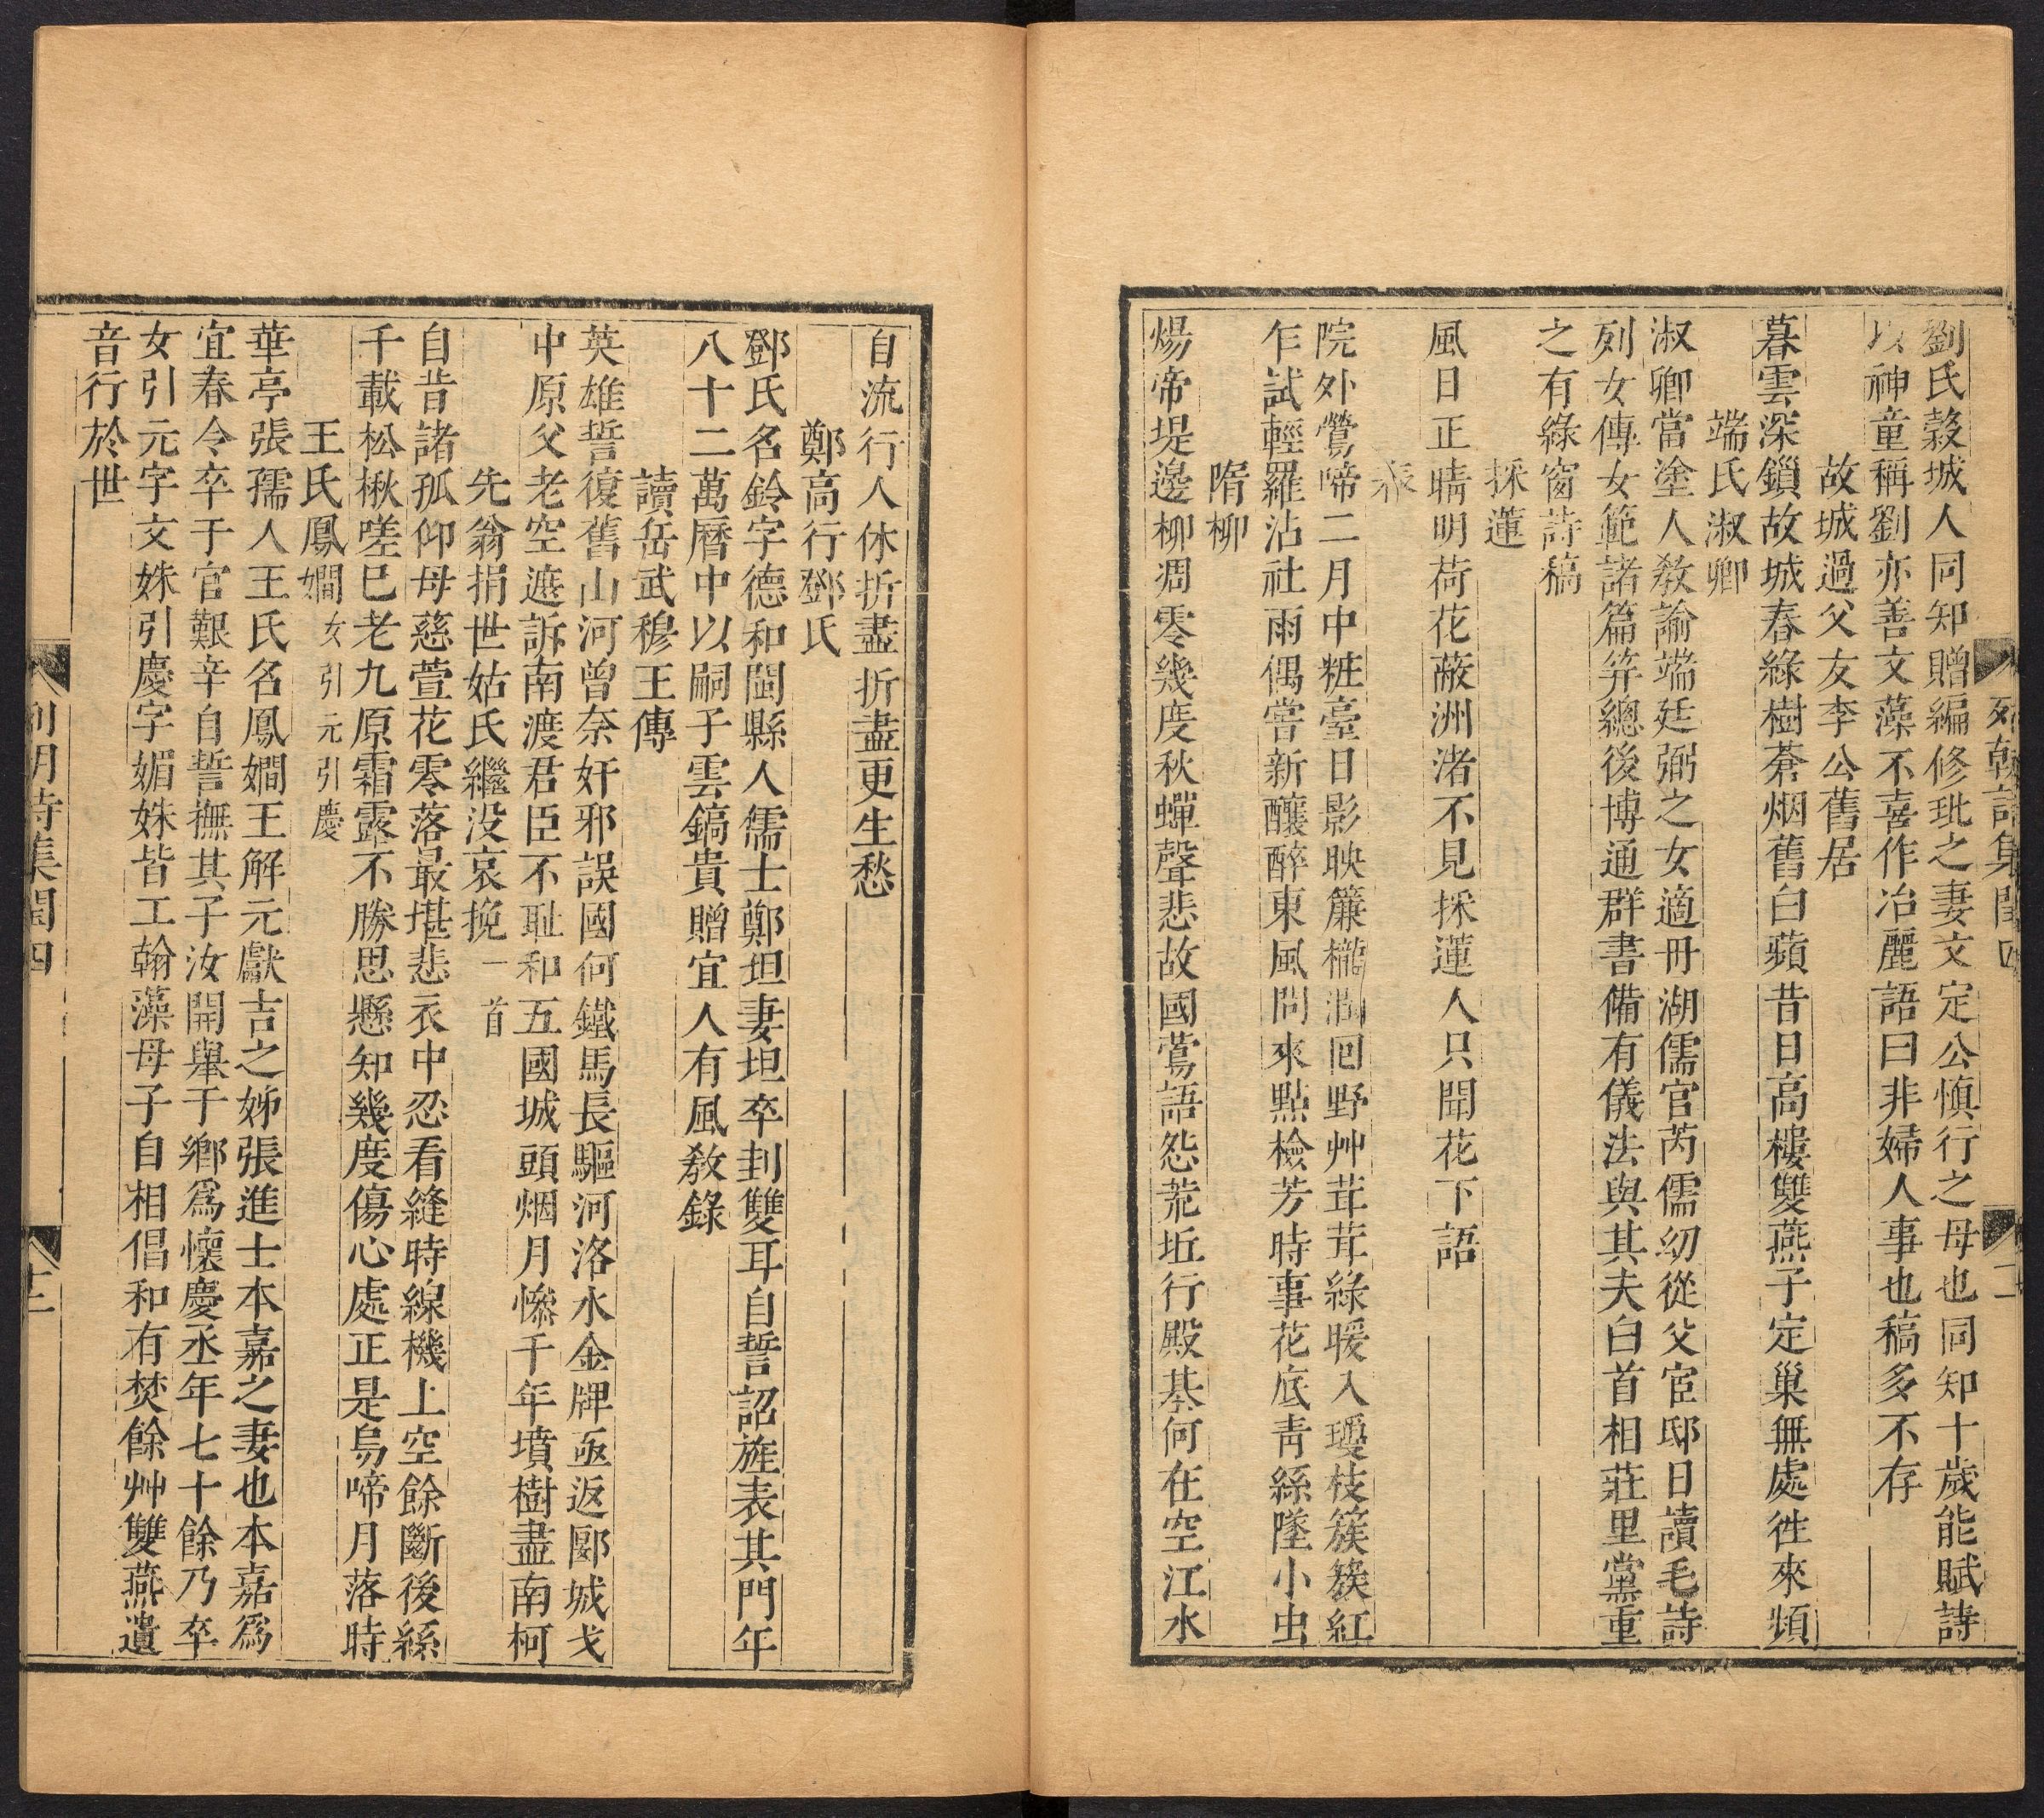 列朝詩集閏四
劉氏穀城人同知贈編修玭之妻文定公慎行之母也同知十歲能賦詩
以神童稱劉亦善文藻不喜作冶麗語曰非婦人事也稿多不存
故城過父友李公舊居
暮雲深鎖故城春綠樹蒼烟舊白蘋昔日高樓雙燕子定巢無處徃來頻
端氏淑卿
淑卿當塗人敎諭端廷弼之女適冊湖儒官芮儒幼從父宦邸日讀毛詩
列女傳女範諸篇笄總後博通群書備有儀法與其夫白首相莊里黨重
之有綠窗詩稿
採蓮
風日正晴明荷花蔽洲渚不見採蓮人只聞花下語
院外鶯啼二月中粧臺日影映簾櫳潤回野艸茸茸綠暖入瓊枝簇簇紅
乍試輕羅沾社雨偶嘗新釀醉東風閒來點檢芳時事花底靑絲墜小虫
隋柳
煬帝堤邊柳凋零幾度秋蟬聲悲故國鶯語怨荒坵行殿基何在空江水
自流行人休折盡折盡更生愁
鄭高行鄧氏
鄧氏名鈴字德和閩縣人儒士鄭坦妻坦卒刲雙耳自誓詔旌表其門年
八十二萬曆中以嗣子雲鎬貴贈宜人有風敎錄
讀岳武穆王傳
英雄誓復舊山河曾奈奸邪誤國何鐵馬長驅河洛水金牌亟返郾城戈
中原父老空遮訴南渡君臣不耻和五國城頭烟月慘千年墳樹盡南柯
先翁捐世姑氏繼没哀挽一首
自昔諸孤仰母慈萱花零落最堪悲衣中忍看縫時線機上空餘斷後絲
千載松楸嗟巳老九原霜露不勝思懸知幾度傷心處正是烏啼月落時
王氏鳳嫺女引元引慶
華亭張孺人王氏名鳳嫺王解元獻吉之姊張進士本嘉之妻也本嘉爲
宜春令卒于官艱辛自誓撫其子汝開舉于鄉爲懷慶丞年七十餘乃卒
女引元字文姝引慶字媚姝皆工翰藻母子自相倡和有焚餘艸雙燕遺
音行於世
列朝詩集閏四